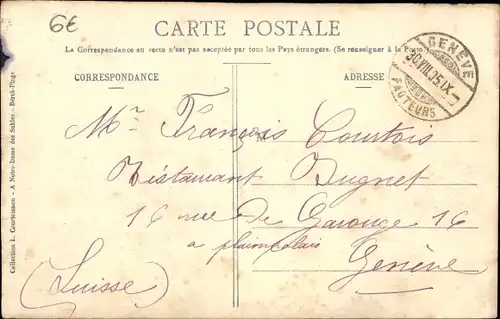 6€
CARTE POSTALE
La Correspondance au recto n'est pas acceptée par tous les Pays étrangers. (Se renseigner à la Poste.)
CORRESPONDANCE
ADRESSE
GENÈVE
30.VIII.05.IX
FACTEURS
Mr François Courtois
Réstaurant Dugnet
16 rue De Carouge 16
a plainpalais
Genève
(Suisse)
Collection L. Courboisson - A Notre-Dame des Sables - Berck-Plage